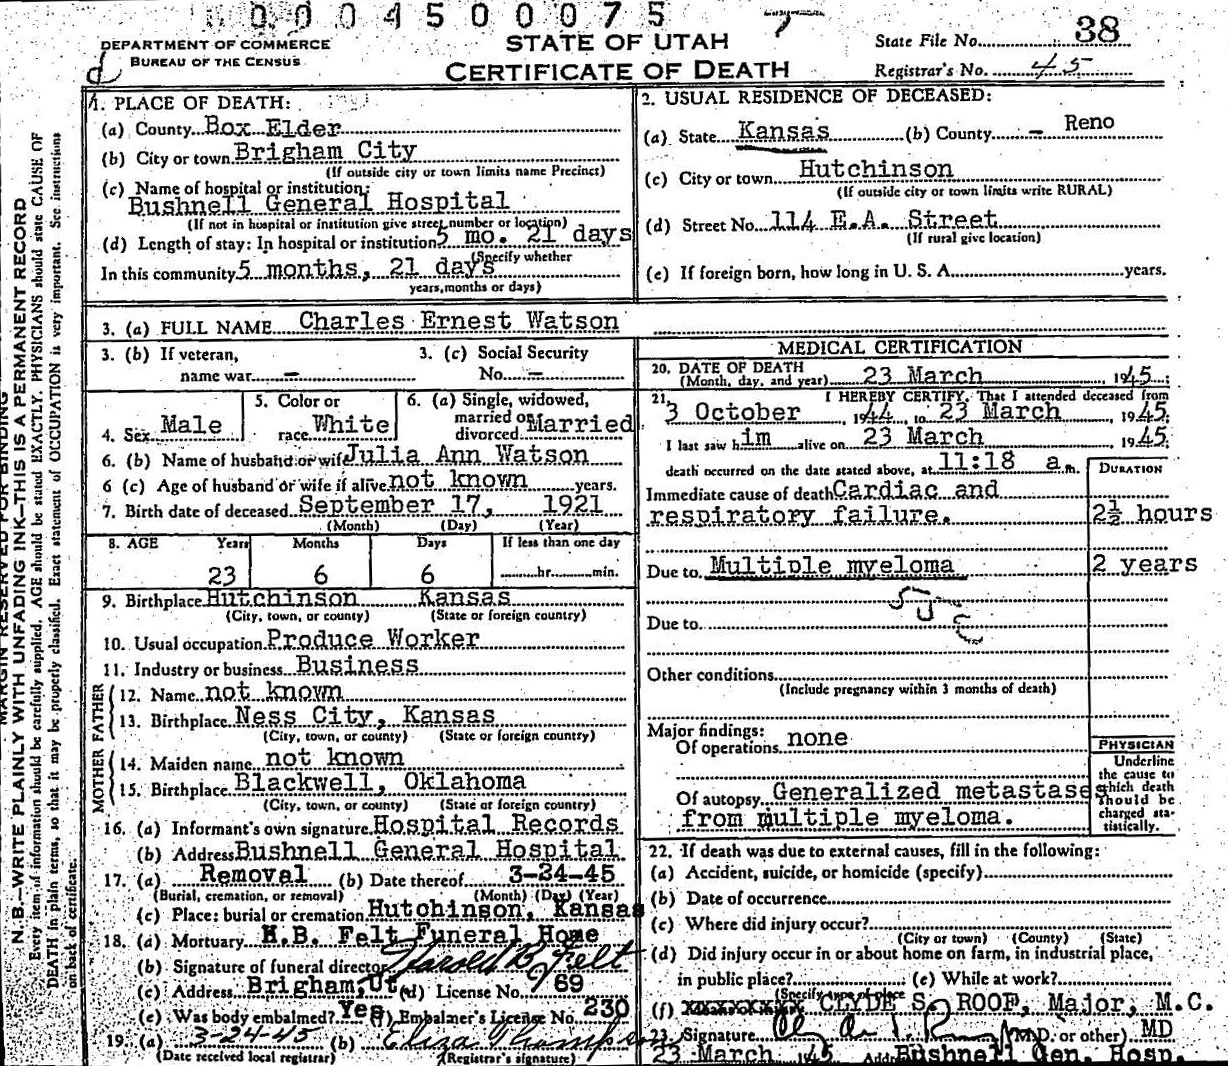 0004500075 7
DEPARTMENT OF COMMERCE
BUREAU OF THE CENSUS
d
STATE OF UTAH
CERTIFICATE OF DEATH
State File No. 38
Registrar's No. 45
1. PLACE OF DEATH:
(a) County Box Elder
(b) City or town Brigham City
(If outside city or town limits name Precinct)
(c) Name of hospital or institution:
Bushnell General Hospital
(If not in hospital or institution give street number or location)
(d) Length of stay: In hospital or institution 5 mo. 21 days
(Specify whether
In this community 5 months, 21 days
years, months or days)
2. USUAL RESIDENCE OF DECEASED:
(a) State Kansas (b) County - Reno
(c) City or town Hutchinson
(If outside city or town limits write RURAL)
(d) Street No. 114 E.A. Street
(If rural give location)
(e) If foreign born, how long in U. S. A. years.
3. (a) FULL NAME Charles Ernest Watson
3. (b) If veteran,
name war -
3. (c) Social Security
No. -
4. Sex Male
5. Color or
race White
6. (a) Single, widowed,
married or
divorced Married
6. (b) Name of husband or wife Julia Ann Watson
6 (c) Age of husband or wife if alive not known years.
7. Birth date of deceased September 17, 1921
(Month) (Day) (Year)
8. AGE Years Months Days If less than one day
23 6 6 hr. min.
9. Birthplace Hutchinson Kansas
(City, town, or county) (State or foreign country)
10. Usual occupation Produce Worker
11. Industry or business Business
FATHER
12. Name not known
13. Birthplace Ness City, Kansas
(City, town, or county) (State or foreign country)
MOTHER
14. Maiden name not known
15. Birthplace Blackwell, Oklahoma
(City, town, or county) (State or foreign country)
16. (a) Informant's own signature Hospital Records
(b) Address Bushnell General Hospital
17. (a) Removal (b) Date thereof 3-24-45
(Burial, cremation, or removal) (Month) (Day) (Year)
(c) Place: burial or cremation Hutchinson, Kansas
18. (a) Mortuary H.B. Felt Funeral Home
(b) Signature of funeral director Harold B. Felt
(c) Address Brigham, Ut. (d) License No. 769
(e) Was body embalmed? Yes (f) Embalmer's License No. 230
19. (a) 3-24-45 (b) Eliza Thompson
(Date received local registrar) (Registrar's signature)
MEDICAL CERTIFICATION
20. DATE OF DEATH
(Month, day, and year) 23 March, 1945;
21. I HEREBY CERTIFY, That I attended deceased from
3 October, 1944, to 23 March 1945;
I last saw him alive on 23 March 1945;
death occurred on the date stated above, at 11:18 a.m.
DURATION
Immediate cause of death Cardiac and
respiratory failure. 2½ hours
Due to Multiple myeloma 2 years
Due to
Other conditions
(Include pregnancy within 3 months of death)
Major findings:
Of operations none
Of autopsy Generalized metastases
from multiple myeloma.
PHYSICIAN
Underline
the cause to
which death
should be
charged sta-
tistically.
22. If death was due to external causes, fill in the following:
(a) Accident, suicide, or homicide (specify)
(b) Date of occurrence
(c) Where did injury occur?
(City or town) (County) (State)
(d) Did injury occur in or about home on farm, in industrial place,
in public place? (e) While at work?
(Specify type of place)
(f) CLYDE S. ROOF, Major, M.C.
23 Signature (M.D. or other) MD
23 March 1945 Address Bushnell Gen. Hosp.
MARGIN RESERVED FOR BINDING
N. B.—WRITE PLAINLY WITH UNFADING INK—THIS IS A PERMANENT RECORD
Every item of information should be carefully supplied. AGE should be stated EXACTLY. PHYSICIANS should state CAUSE OF
DEATH in plain terms, so that it may be properly classified. Exact statement of OCCUPATION is very important. See instructions
on back of certificate.